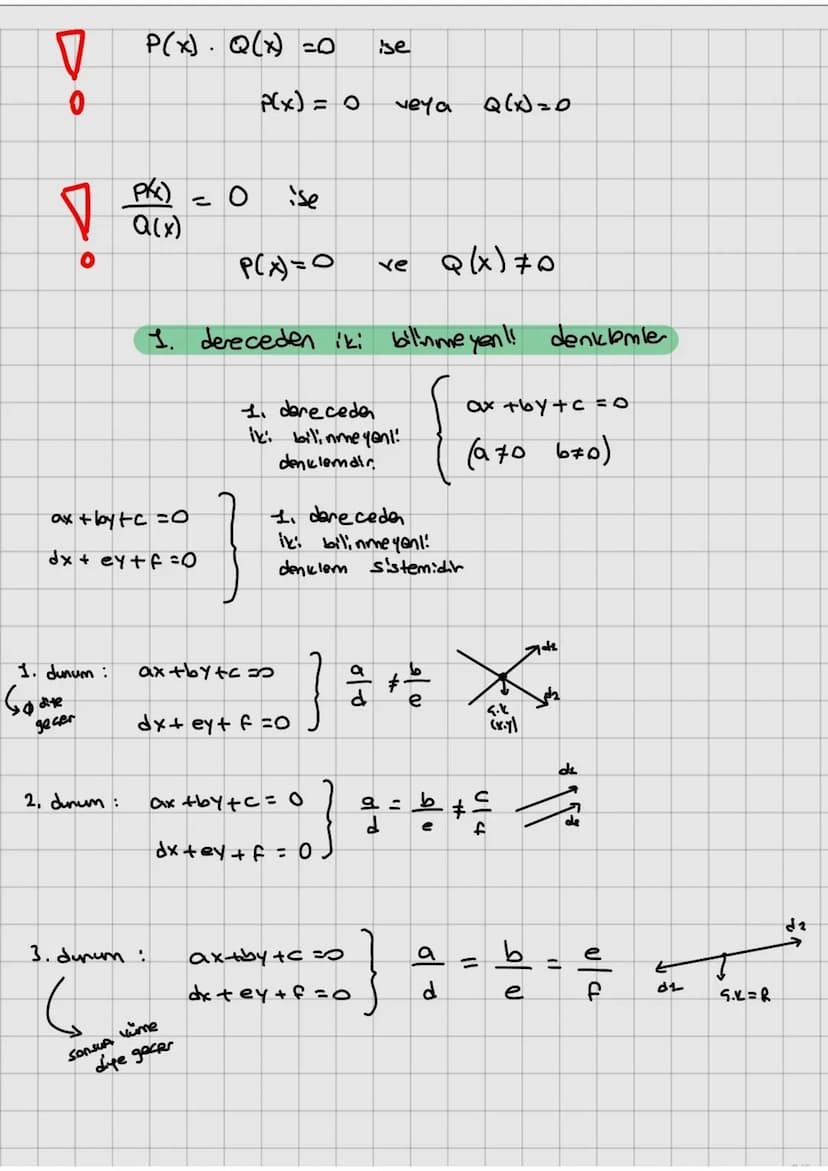 P(x) . Q(x) = 0 ise
P(x) = 0 veya Q(x) = 0
P(x)/Q(x) = 0 ise
P(x) = 0 ve Q(x) ≠ 0
1. dereceden iki bilinmeyenli denklemler
1. dereceden
iki bilinmeyenli
denklemdir.
ax + by + c = 0
(a ≠ 0 b ≠ 0)
ax + by + c = 0
dx + ey + f = 0
1. dereceden
iki bilinmeyenli
denklem sistemidir
1. durum : ax + by + c = 0 a/d ≠ b/e d1
↳ ∅ diye
geçer
dx + ey + f = 0 d2
Ç.K
(x.y)
2. durum : ax + by + c = 0 a/d = b/e ≠ c/f d1
dx + ey + f = 0 d2
3. durum : ax + by + c = 0 a/d = b/e = e/f d2
dx + ey + f = 0 d1 Ç.K = R
sonsuz küme
diye geçer